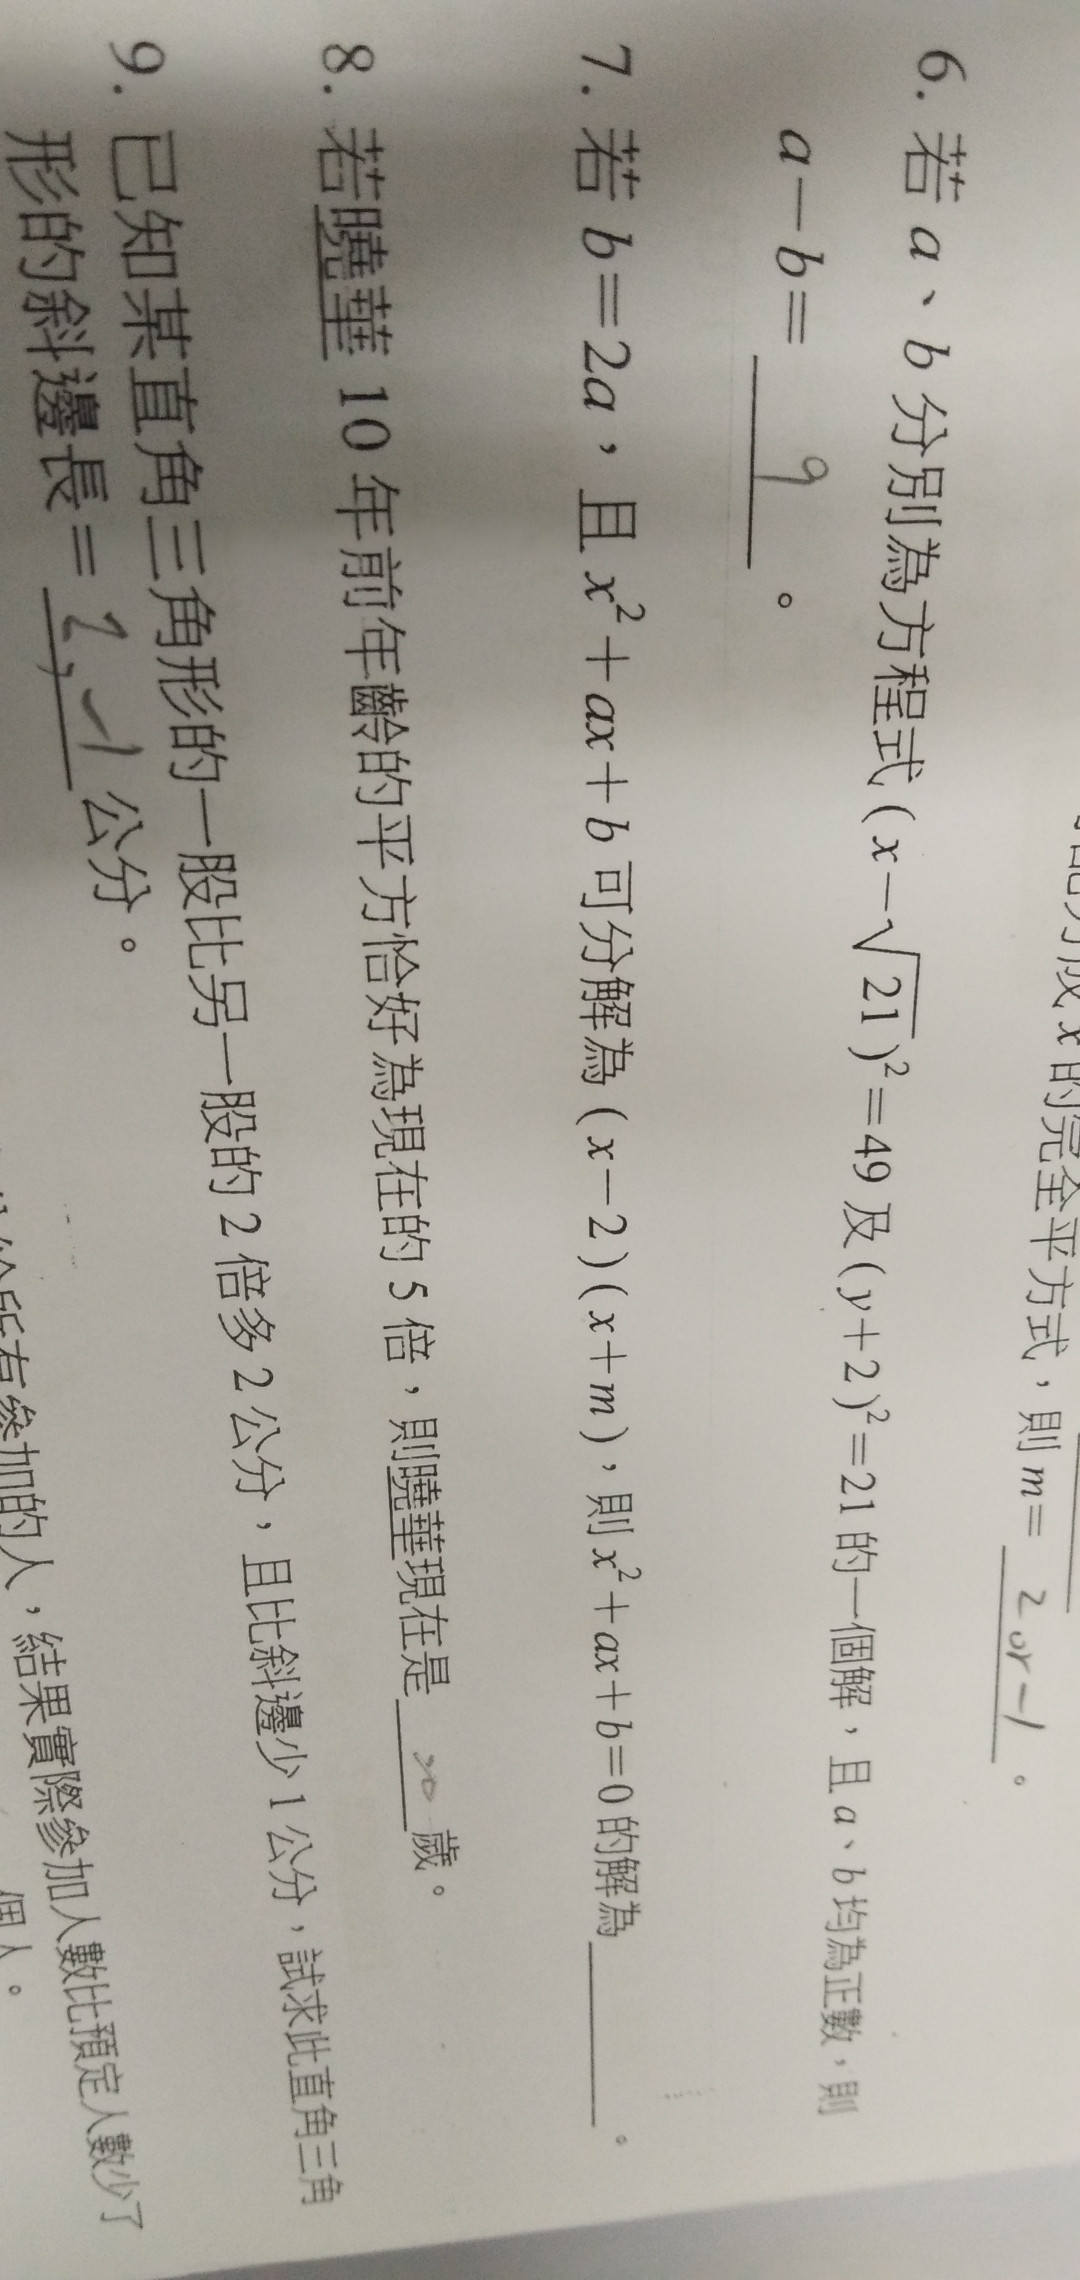 的完全平方式,則 m= 2 or -1 。
6. 若 a、b 分別為方程式 (x-√21)²=49 及 (y+2)²=21 的一個解,且 a、b 均為正數,則
a-b= 9 。
7. 若 b=2a,且 x²+ax+b 可分解為 (x-2)(x+m),則 x²+ax+b=0 的解為____。
8. 若曉華 10 年前年齡的平方恰好為現在的 5 倍,則曉華現在是 20 歲。
9. 已知某直角三角形的一股比另一股的 2 倍多 2 公分,且比斜邊少 1 公分,試求此直角三角
形的斜邊長= 2,-1 公分。
所有參加的人,結果實際參加人數比預定人數少了
個人。